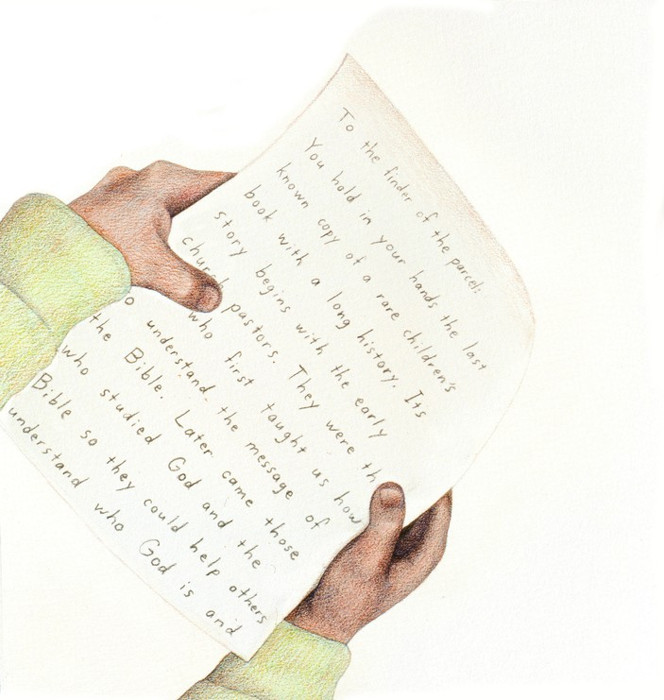 To the finder of the parcel:
You hold in your hands the last
known copy of a rare children's
book with a long history. Its
story begins with the early
chur pastors. They were th
who first taught us how
o understand the message of
the Bible. Later came those
who studied God and the
Bible so they could help others
understand who God is and